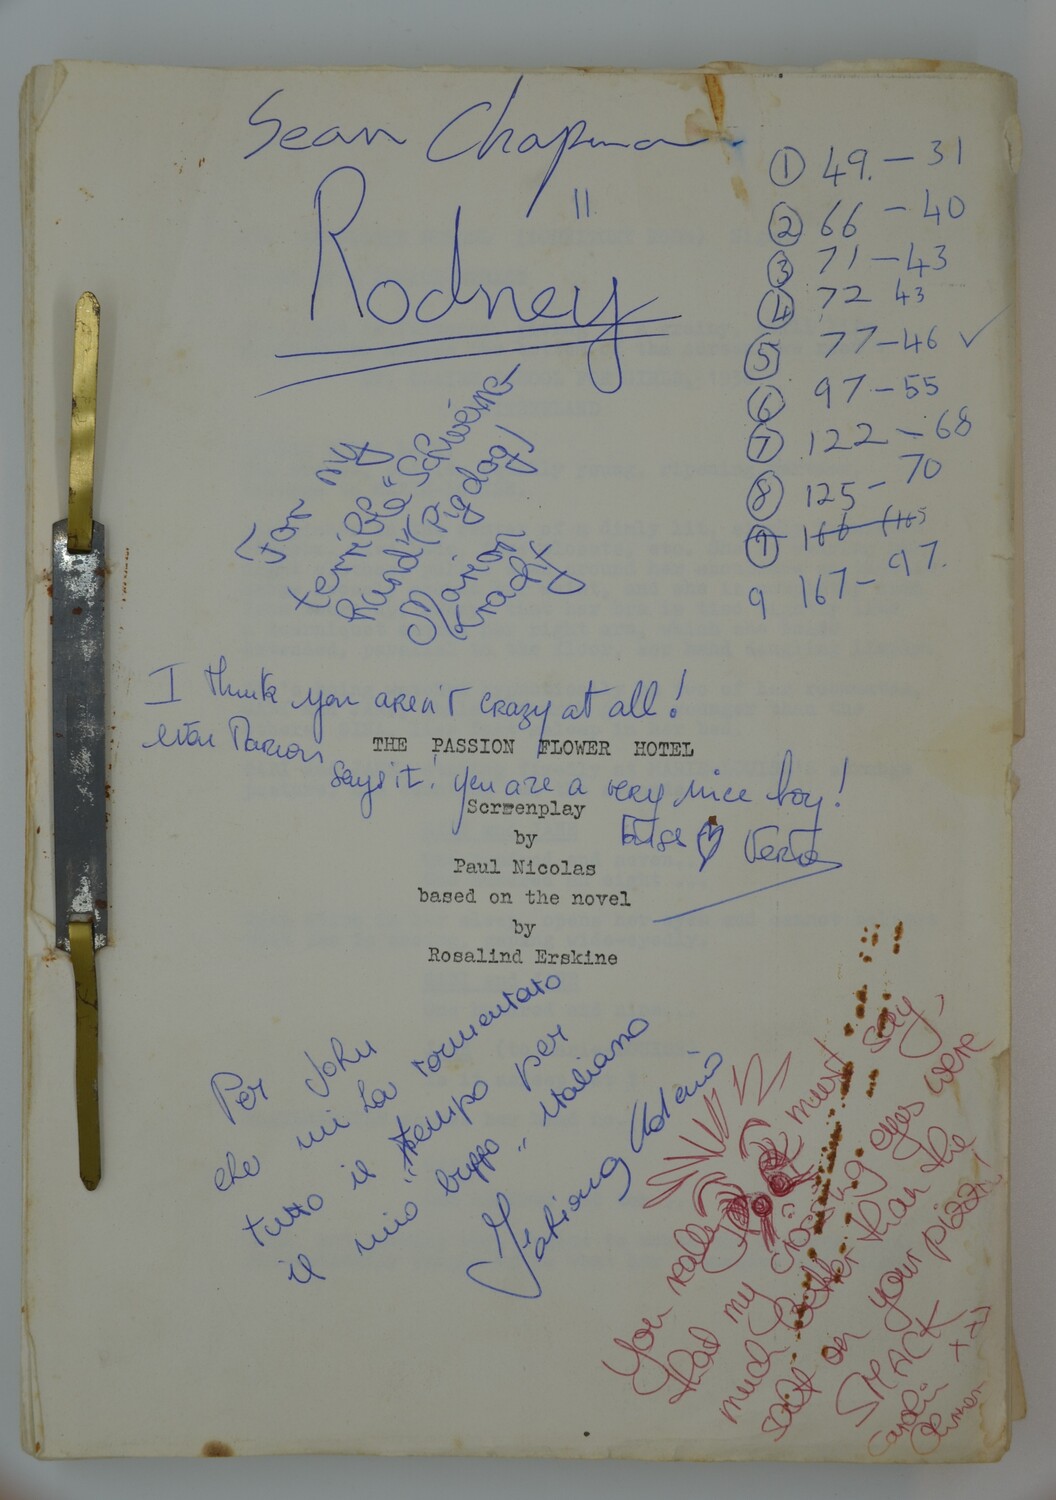 Sean Chapman
"
Rodney
① 49. – 31
② 66 – 40
③ 71 – 43
④ 72 43
⑤ 77 – 46 ✓
⑥ 97 – 55
⑦ 122 – 68
⑧ 125 – 70
⑨ 166 (165
9 167 – 97.
For my
terrible "Schweine
hund" (Pigdog)
Marion
Kracht
I think you aren't crazy at all!
even Marion
says it! you are a very nice boy!
THE PASSION FLOWER HOTEL
Screenplay
by
Paul Nicolas
based on the novel
by
Rosalind Erskine
Per John
che mi ha tormentato
tutto il tempo per
il mio "buffo" italiano
Fabiana Udenio
You really must say,
that my crossing eyes were
much better than the
salt on your pizza!
SMACK
xxx
Carolin
Ohrner